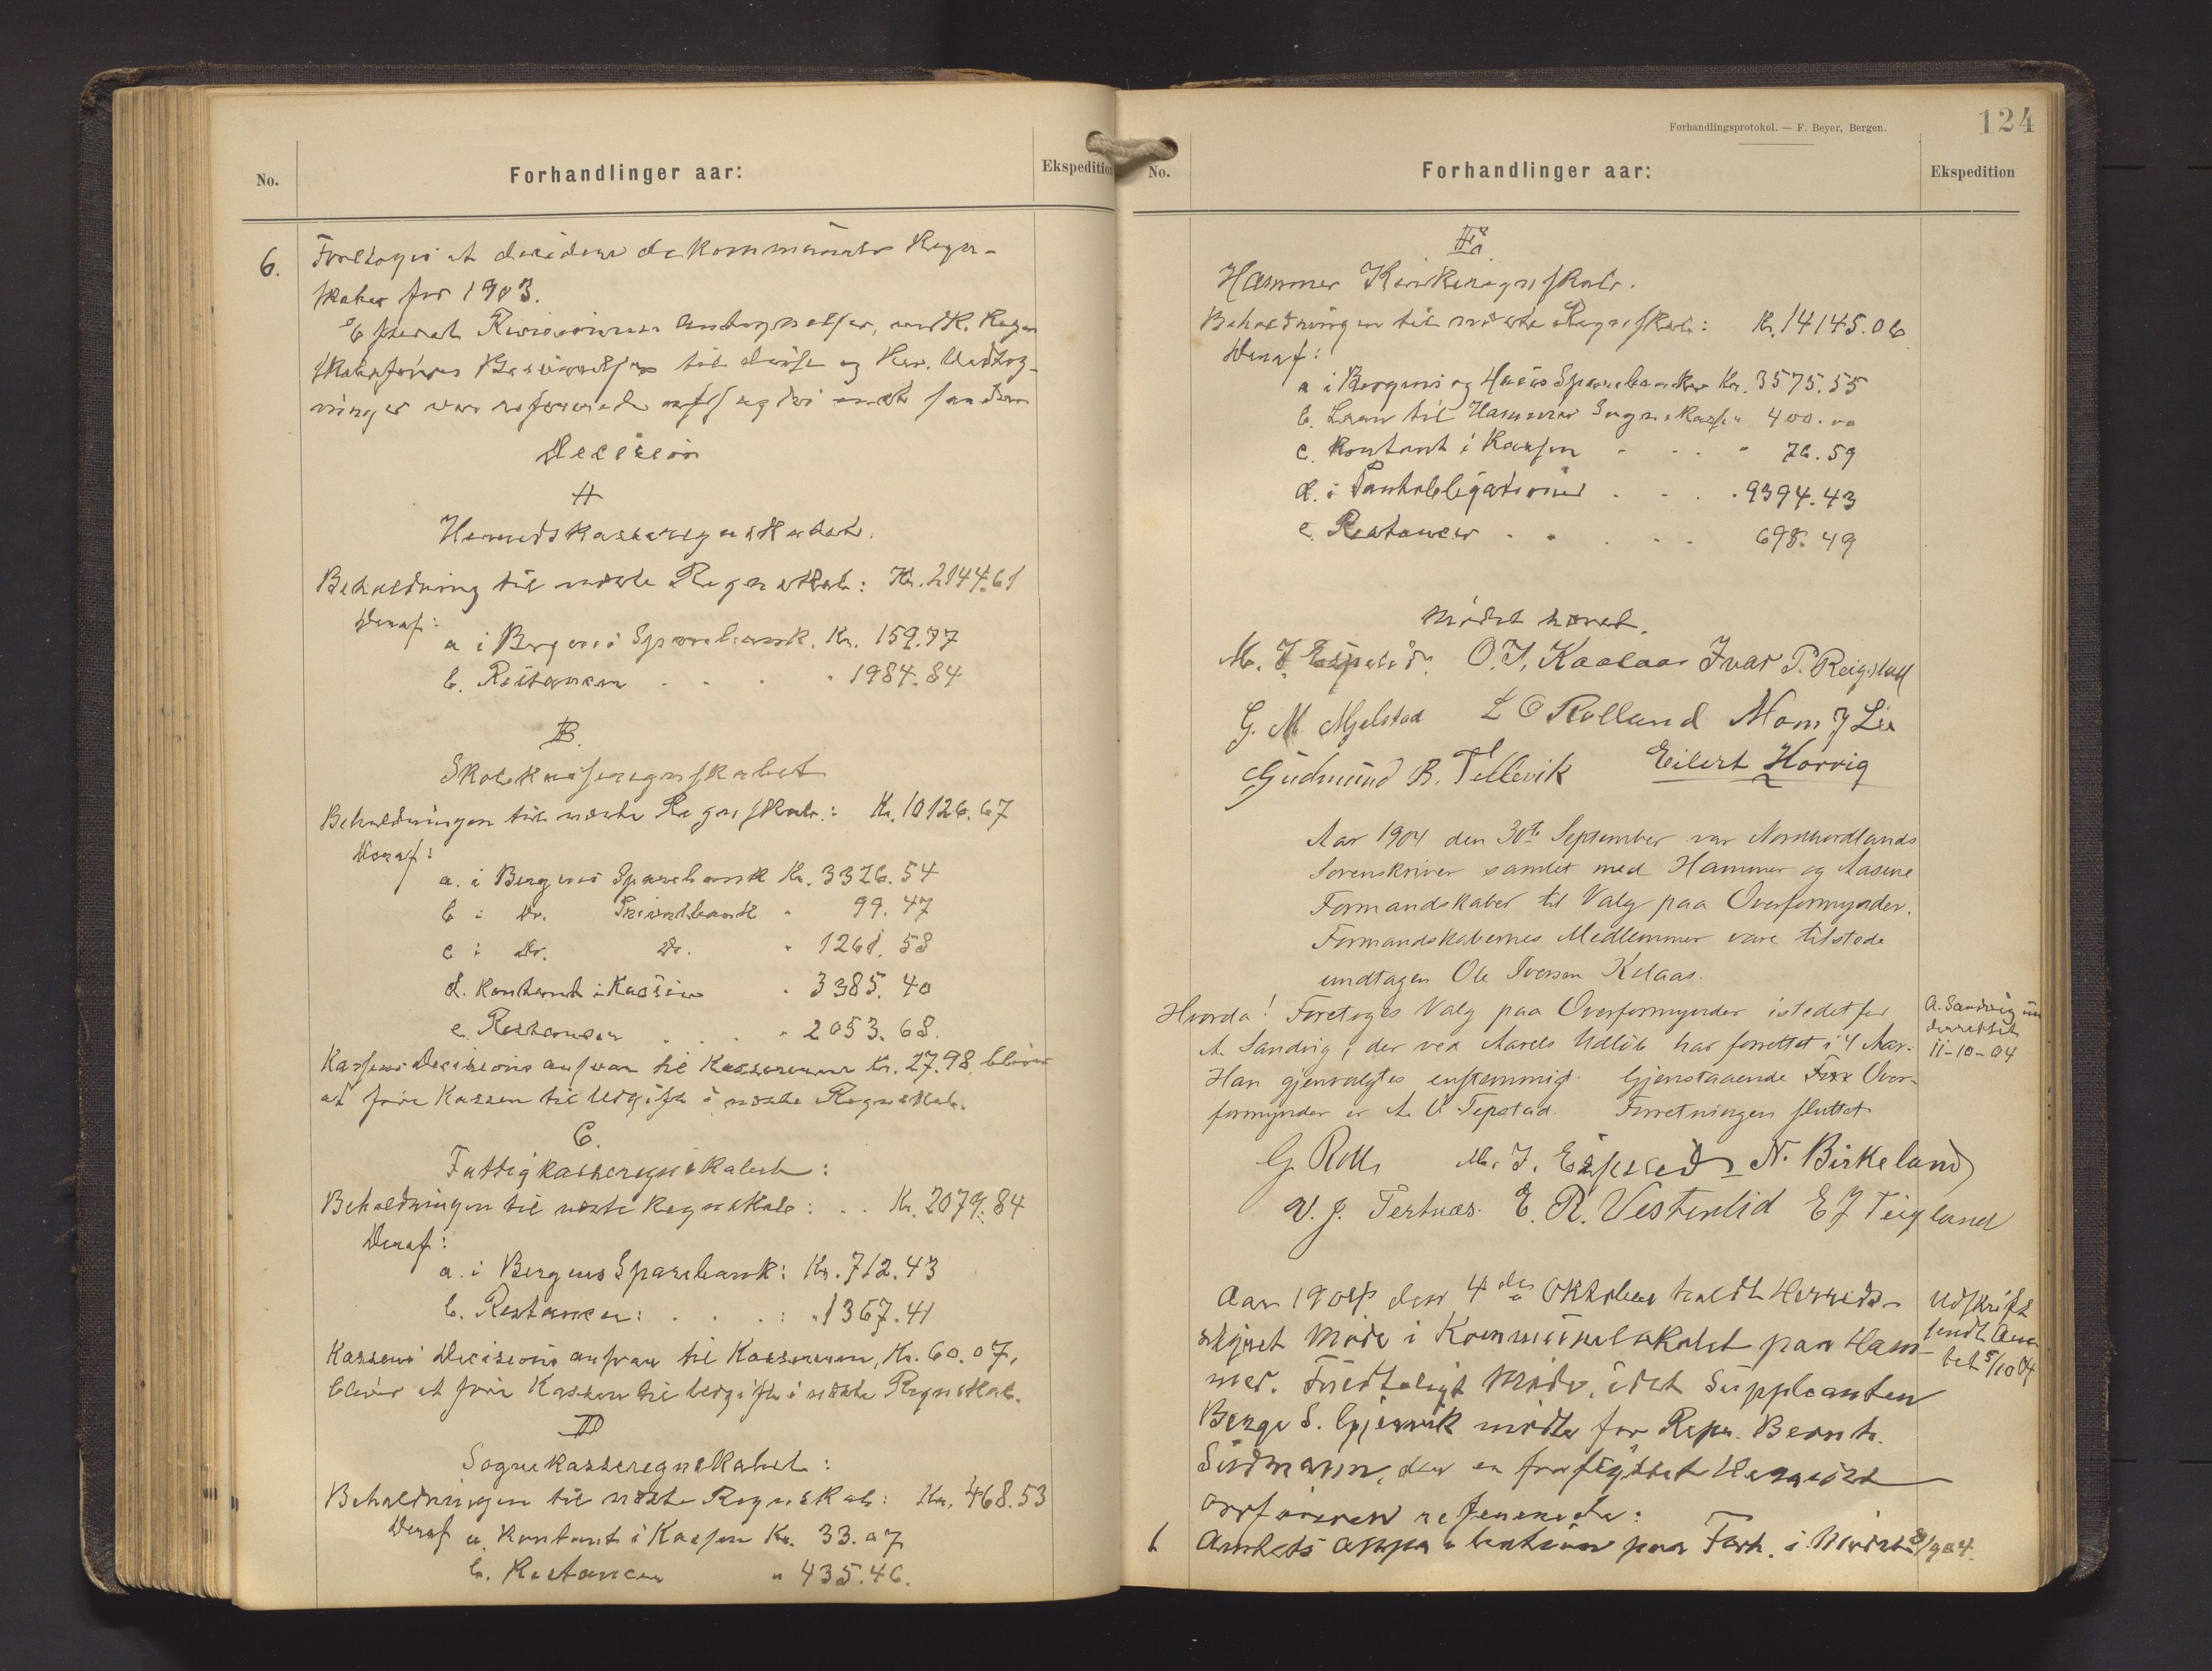 No.
Forhandlinger aar:
Ekspedition
6. Foretoges at decidere de kommunale Regn-
skaber for 1903.
Efterat Revisionens Antegnelser, vedk. Regn
skabsførers Besvarelser til disse og Rev. Uedtog-
ninger var
Decision
A
Herredskasseregnskabet.
Beholdning til næste Regnskab: Kr. 2144.61
Deraf:
a i Bergens Sparebank. Kr. 159.77
b. Restancer . . . " 1984.84
B.
Skolekasseregnskabet
Beholdningen til næste Regnskab: Kr. 10126.67
Deraf:
a. i Bergens Sparebank Kr. 3326.54
b i Do. Privatbank " 99.47
c i Do. Do. " 1261.58
d. Kontant i Kassen " 3385.40
e. Restancer . . . " 2053.68
Kassens Decisions ansvar til Kassereren Kr. 27.98. bliver
at føre Kassen til Udgift i næste Regnskab.
C.
Fattigkasseregnskabet:
Beholdningen til næste Regnskab: . . Kr. 2079.84
Deraf:
a. i Bergens Sparebank: Kr. 712.43
b. Restancer: . . . : " 1367.41
Kassens Decisions ansvar til Kassereren, Kr. 60.07,
bliver at føre Kassen til Udgift i næste Regnskab.
D
Sognekasseregnskabet:
Beholdningen til næste Regnskab: Kr. 468.53
Deraf a. Kontant i Kassen Kr. 33.07
b. Restancer " 435.46.
Forhandlingsprotokol. — F. Beyer, Bergen.
124
No.
Forhandlinger aar:
Ekspedition
Hammer Kirkeregnskab.
Beholdningen til næste Regnskab: Kr. 14145.06
Deraf:
a i Bergens og Haus Sparebanker Kr. 3575.55
b. Laan til Hammer Sognekasse " 400.00
c. Kontant i Kassen - . . " 76.59
d. i Pantobligationer . - . . 9394.43
e. Restancer . . . . . 698.49
Mødet hævet.
M. J. Eispeseid. O. I. Kaalaas Ivar P. Reigstad
G. M. Mjelstad L O Rolland Mons J Lie
Gudmund B. Tellevik Eilert Horvig
Aar 1904 den 30te September var Nordhordlands
Sorenskriver samlet med Hammer og Aasene
Formandskaber til Valg paa Overformynder.
Formandskabernes Medlemmer vare tilstede
undtagen Ole Iversen Kalaas.
Hvorda! Foretoges Valg paa Overformynder istedetfor
A. Sandvig, der ved Aarets Udløb har forrettet i 4 Aar.
Han gjenvalgtes enstemmigt. Gjenstaaende Over-
formynder er A. O Tepstad. Forretningen sluttet
A. Sandvig un
derrettet
11-10-04
G. Roll M. J. Eispeseid N. Birkeland
V. J. Tertnæs. E. R. Vestrelid E J Teigland
Aar 1904 den 4de Oktober holdt Herreds-
styret Møde i Kommunelokalet paa Ham-
mer. Fuldtaligt Møde, idet Suppleanten
Berge S. Gjervik mødte for Repr. Bernt
Sindmann, der er fraflyttet Herredet
Ordføreren refererede:
Udskrift
sendt Am-
tet 5/10 04
1 Amtets approbation paa Forh. i Møde 3/9 04.